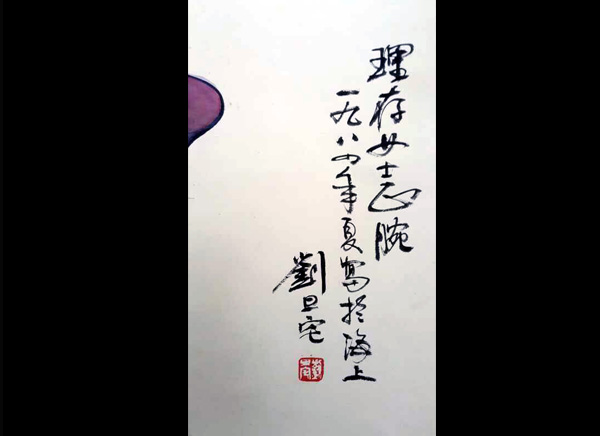 理存女士正腕
一九八四年夏寫於海上
劉旦宅